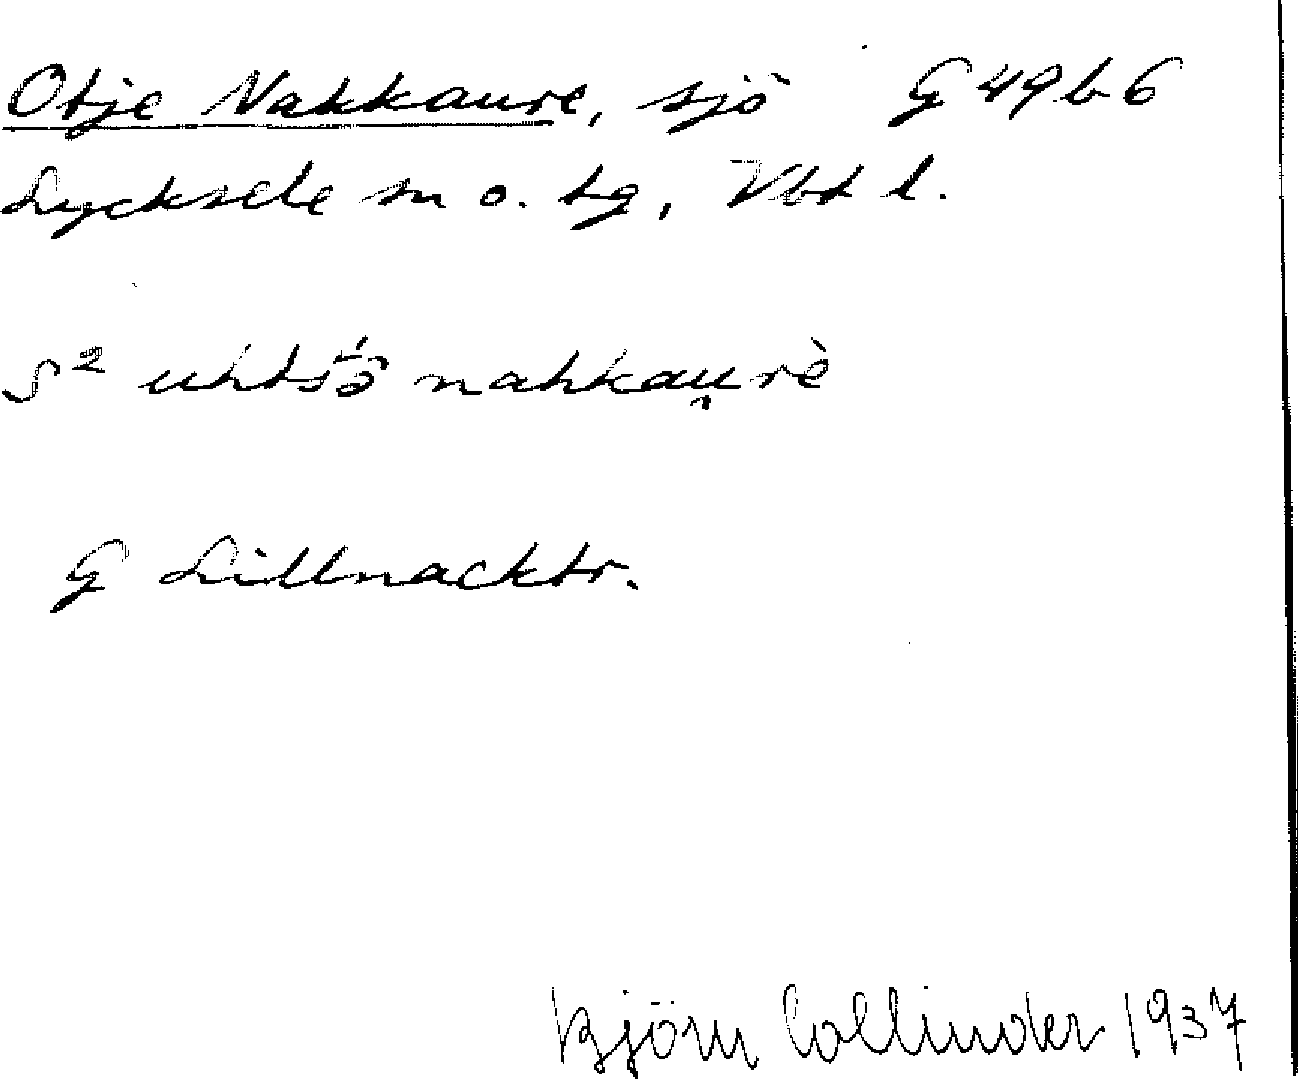 Otje Nakkaure, sjö G 49 b 6
Lycksele sn o. tg, Vbt l.
S² nahkau̯rè
G Lillnacktr.
Björn Collinder 1937